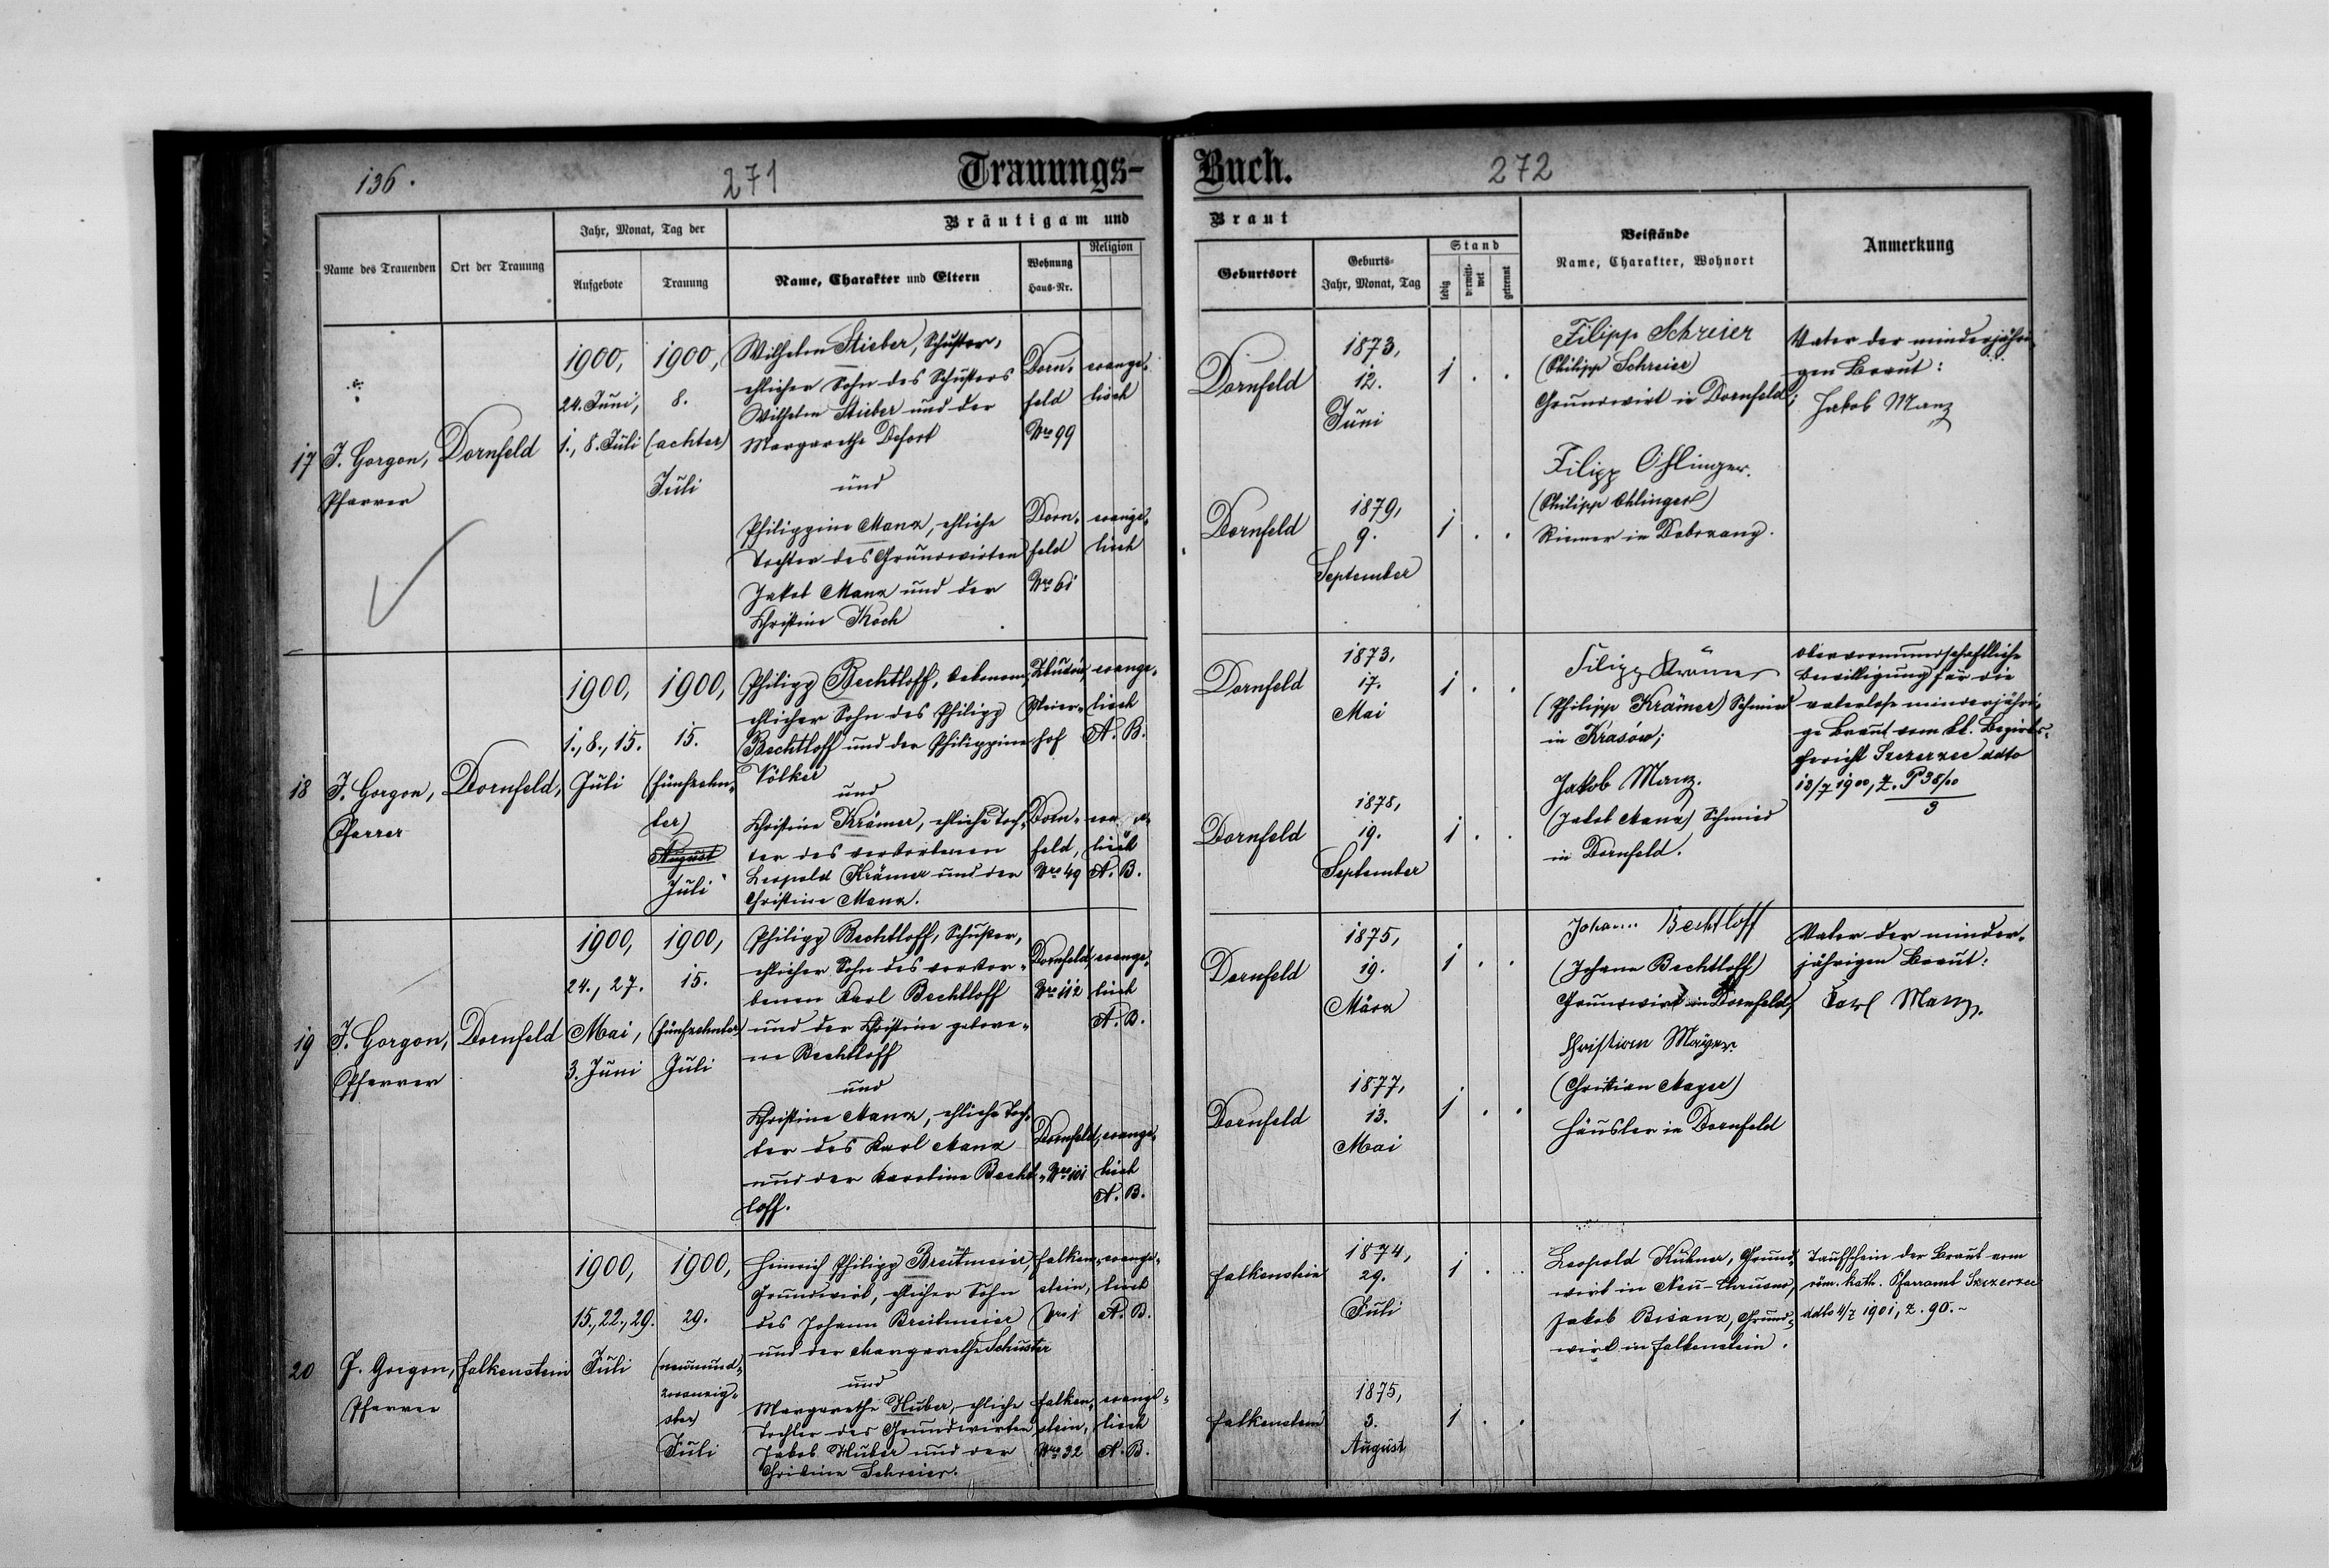 136.
271
Trauungs-
Buch.
272
Bräutigam und
Braut
Name des Trauenden
Ort der Trauung
Jahr, Monat, Tag der
Aufgebote
Trauung
Name, Charakter und Eltern
Wohnung
Haus-Nr.
Religion
Geburtsort
Geburts-
Jahr, Monat, Tag
Stand
ledig
verwitt-
wet
getrennt
Beistände
Name, Charakter, Wohnort
Anmerkung
17
J. Gorgon,
Pfarrer
Dornfeld
1900,
24. Juni,
1., 8. Juli
1900,
8.
(achter)
Juli
Wilhelm Stieber, Schuster,
ehlicher Sohn des Schusters
Wilhelm Stieber und der
Margarethe Defort
und
Philippine Manz, ehliche
Tochter des Grundwirten
Jakob Manz und der
Christine Koch
Dorn-
feld
Nro 99
evange-
lisch
Dorn-
feld
Nro 61
evange-
lisch
Dornfeld
1873,
12.
Juni
1 . .
Dornfeld
1879,
9.
September
1 . .
Filipp Schreier
(Philipp Schreier)
Grundwirt in Dornfeld;
Filipp Ohlinger.
(Philipp Ohlinger)
Riemer in
Vater der minderjähri-
gen Braut:
Jakob Manz
18
J. Gorgon,
Pfarrer
Dornfeld,
1900,
1., 8., 15.
Juli
1900,
15.
(fünfzehn-
ter)
August
Juli
Philipp Bechtloff, Oekonom,
ehlicher Sohn des Philipp
Bechtloff und der Philippine
Völker
und
Christine Krämer, ehliche Toch-
ter des verstorbenen
Leopold Krämer und der
Christine Manz.
Meier-
hof
evange-
lisch
A. B.
Dorn-
feld,
Nro 49
lisch
A. B.
Dornfeld
1873,
17.
Mai
1 . .
Dornfeld
1878,
19.
September
1 . .
Filipp Krämer
(Philipp Krämer) Schmied
in Krasów;
Jakob Manz.
(Jakob Manz) Schmied
in Dornfeld.
obervormundschaftliche
Bewilligung für die
vaterlose minderjähri-
ge Braut vom kk. Bezirks-
gericht Szczerzec ddto
13/7 1900, Z. P 38/00
3
19
J. Gorgon,
Pfarrer
Dornfeld
1900,
24., 27.
Mai,
3. Juni
1900,
15.
(fünfzehnter)
Juli
Philipp Bechtloff, Schuster,
ehlicher Sohn des verstor-
benen Karl Bechtloff
und der Christine gebore-
ne Bechtloff
und
Christine Manz, ehliche Toch-
ter des Karl Manz
und der Karoline Becht-
loff.
Dornfeld,
Nro 112
evange-
lisch
A. B.
Dornfeld,
Nro 101
evange-
lisch
A. B.
Dornfeld
1875,
19.
März
1 . .
Dornfeld
1877,
13.
Mai
1 . .
Johann Bechtloff
(Johann Bechtloff)
Grundwirt in Dornfeld;
Christian Mayer.
(Christian Mayer)
Häusler in Dornfeld
Vater der minder-
jährigen Braut:
Karl Manz.
20
J. Gorgon,
Pfarrer
Falkenstein
1900,
15., 22., 29.
Juli
1900,
29.
(neunund-
zwanzig-
ster)
Juli
Heinrich Philipp Breitmeier,
Grundwirt, ehlicher Sohn
des Johann Breitmeier
und der Margarethe Schuster
und
Margarethe Huber, ehliche
Tochter des Grundwirten
Jakob Huber und der
Christine Schreier.
Falken-
stein,
Nro 1
evange-
lisch
A. B.
Falken-
stein,
Nro 32
evange-
lisch
A. B.
Falkenstein
1874,
29.
Juli
1 . .
Falkenstein
1875,
3.
August
1 . .
Leopold Kühner, Grund-
wirt in Neu-Chrusno,
Jakob Bisanz, Grund-
wirt in Falkenstein.
Taufschein der Braut vom
röm. kath. Pfarramt Szczerzec
ddto 4/7 1901, Z. 90. -